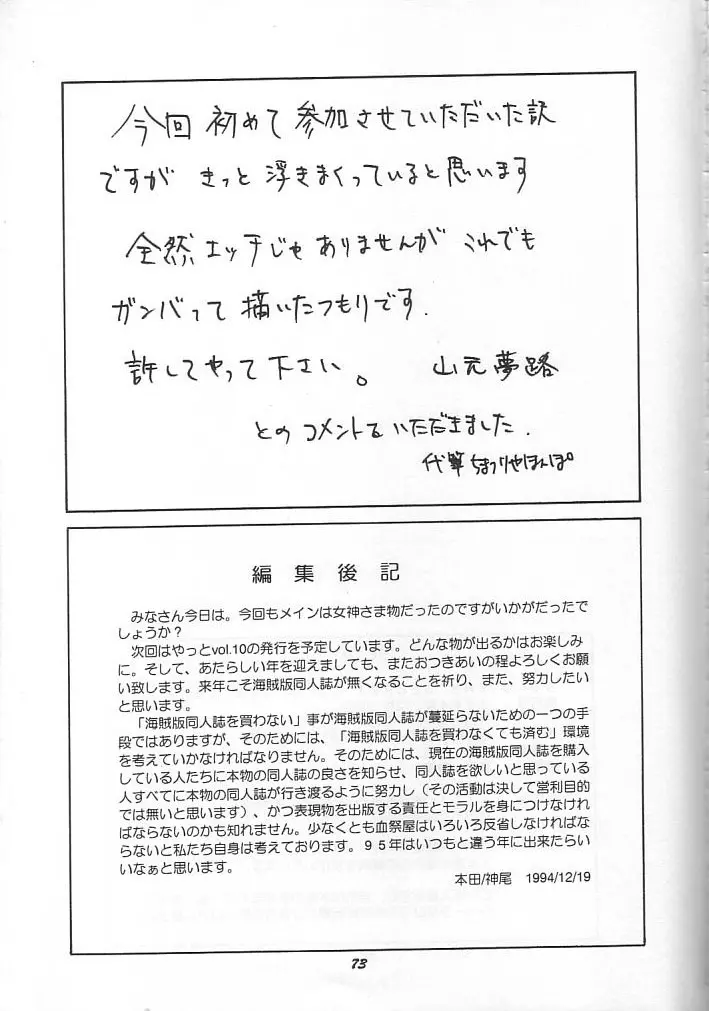 今回 初めて 参加させていただいた訳
ですが きっと 浮きまくっていると思います
全然 エッチじゃ ありませんが これでも
ガンバって 描いたつもりです.
許してやって下さい。 山元夢路
との コメントを いただきました.
代筆 ちまつりやほんぽ
編集後記
みなさん今日は。今回もメインは女神さま物だったのですがいかがだったで
しょうか?
次回はやっとvol.10の発行を予定しています。どんな物が出るかはお楽しみ
に。そして、あたらしい年を迎えましても、またおつきあいの程よろしくお願
い致します。来年こそ海賊版同人誌が無くなることを祈り、また、努力したい
と思います。
「海賊版同人誌を買わない」事が海賊版同人誌が蔓延らないための一つの手
段ではありますが、そのためには、「海賊版同人誌を買わなくても済む」環境
を考えていかなければなりません。そのためには、現在の海賊版同人誌を購入
している人たちに本物の同人誌の良さを知らせ、同人誌を欲しいと思っている
人すべてに本物の同人誌が行き渡るように努力し(その活動は決して営利目的
では無いと思います)、かつ表現物を出版する責任とモラルを身につけなけれ
ばならないのかも知れません。少なくとも血祭屋はいろいろ反省しなければな
らないと私たち自身は考えております。95年はいつもと違う年に出来たらい
いなぁと思います。
本田/神尾 1994/12/19
73